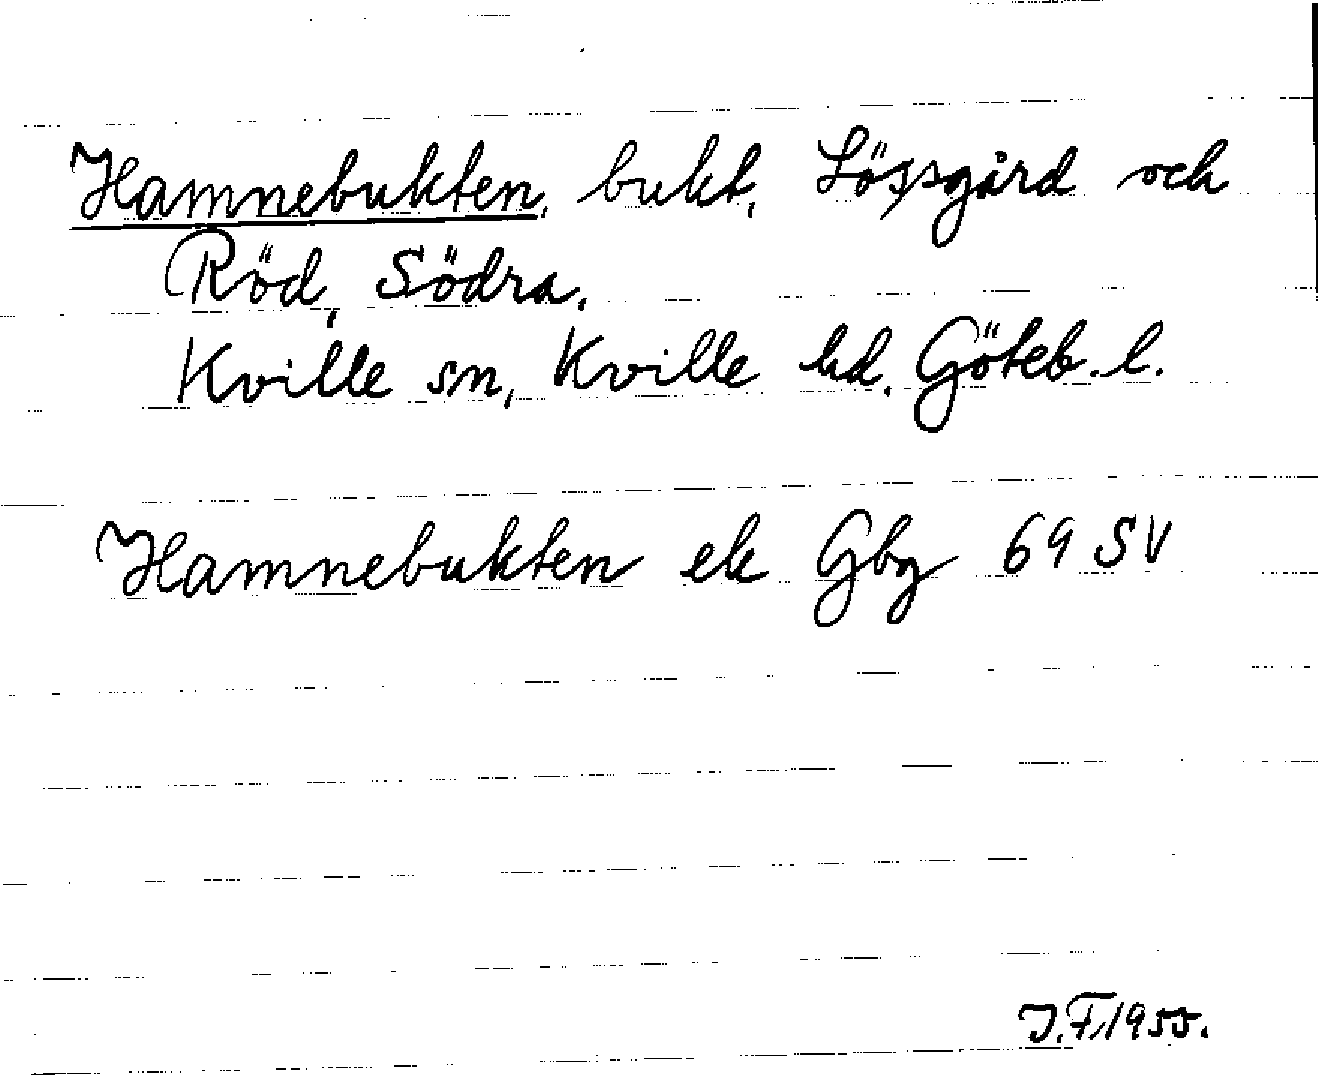 Hamnebukten, bukt, Lössgård och
Röd, Södra,
Kville sn, Kville hd. Göteb. l.
Hamnebukten ek Gbg 69 SV
J.F. 1955.